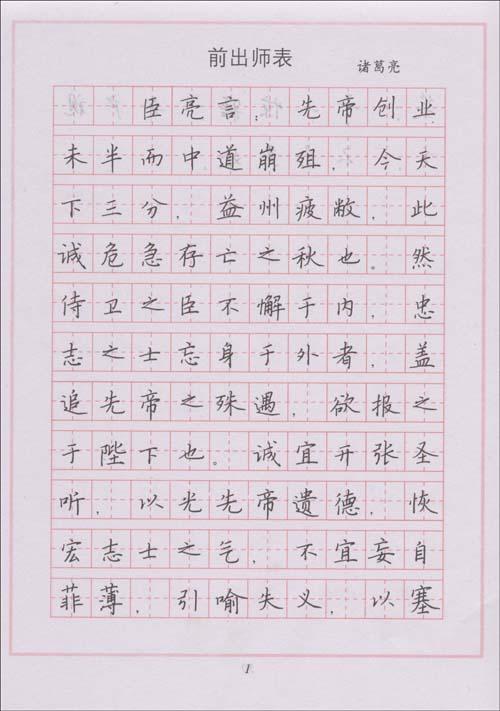 前出师表
诸葛亮
臣亮言：先帝创业
未半而中道崩殂，今天
下三分，益州疲敝，此
诚危急存亡之秋也。然
侍卫之臣不懈于内，忠
志之士忘身于外者，盖
追先帝之殊遇，欲报之
于陛下也。诚宜开张圣
听，以光先帝遗德，恢
宏志士之气，不宜妄自
菲薄，引喻失义，以塞
1